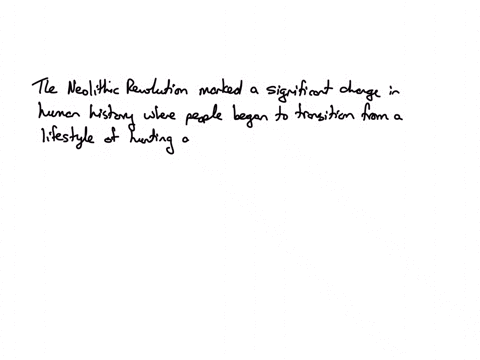 The Neolithic Revolution marked a significant change in
human history where people began to transition from a
lifestyle of hunting a